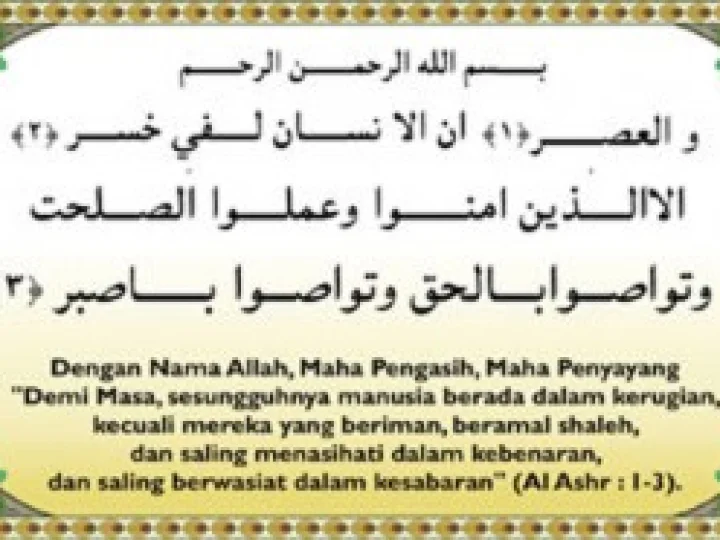 بسم الله الرحمن الرحيم
و العصر ﴿١﴾ ان الا نسان لفي خسر ﴿٢﴾
الاالذين امنوا وعملوا الصلحت
وتواصوابالحق وتواصوا باصبر ﴿٣
Dengan Nama Allah, Maha Pengasih, Maha Penyayang
"Demi Masa, sesungguhnya manusia berada dalam kerugian,
kecuali mereka yang beriman, beramal shaleh,
dan saling menasihati dalam kebenaran,
dan saling berwasiat dalam kesabaran" (Al Ashr : 1-3).